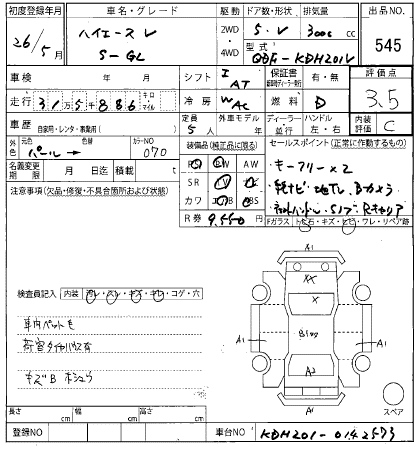 初度登録年月 車名・グレード 駆動 ドア数・形状 排気量 出品NO.
26/5月 ハイエース V 2WD・4WD 5・V 3000cc 545
S-GL 型式 QDF-KDH201V
車検 年 月 シフト I AT 保証書 新車時(ディーラー発行) 有・無 評価点
走行 31万5千886 キロ マイル 冷房 WAC 燃料 D 3.5
車歴 自家用・レンタ・事業用( ) 定員 5人 外車モデル 年 ディーラー・並行 ハンドル 左・右 内装評価 C
外色 元色 パール 色替 カラーNO 070 装備品(純正品に限る) セールスポイント(正常に作動するもの)
名義変更期限 月 日迄 積載 t PS PW AW
SR TV ナビ
カワ エアB ABS
R券 9,550円
・キーフリー×2
・純ナビ・地デジ・Bカメラ
Fガラス トビ石・キズ・ヒビ・ワレ・リペア跡
注意事項(欠品・修復・不具合箇所および状態)
検査員記入 内装 ヨゴレ・スレ・キズ・キレ・コゲ・穴
車内ペットモ
荷室タイヤハウス有
キズB ホシュウ
A1
XX
X
A1
A1
A2
A1
スペア
長さ cm 幅 cm 高さ cm
登録NO 車台NO KDH201-0142573